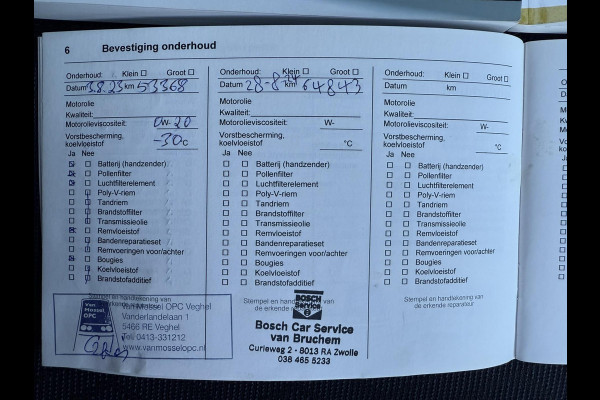 6 Bevestiging onderhoud
Onderhoud: Klein Groot
Datum 3.8.23 km 53368
Motorolie
Kwaliteit:
Motorolieviscositeit: 0W-20
Vorstbescherming,
koelvloeistof -30c
Ja Nee
Batterij (handzender)
Pollenfilter
Luchtfilterelement
Poly-V-riem
Tandriem
Brandstoffilter
Transmissieolie
Remvloeistof
Bandenreparatieset
Remvoeringen voor/achter
Bougies
Koelvloeistof
Brandstofadditief
Stempel en handtekening van
Van Mossel OPC
Van Mossel OPC Veghel
Vanderlandelaan 1
5466 RE Veghel
Tel 0413-331212
www.vanmosselopc.nl
Onderhoud: Klein Groot
Datum 28-8-24 km 64843
Motorolie
Kwaliteit:
Motorolieviscositeit: W-
Vorstbescherming,
koelvloeistof °C
Ja Nee
Batterij (handzender)
Pollenfilter
Luchtfilterelement
Poly-V-riem
Tandriem
Brandstoffilter
Transmissieolie
Remvloeistof
Bandenreparatieset
Remvoeringen voor/achter
Bougies
Koelvloeistof
Brandstofadditief
Stempel en handtekening van
de erkende reparateur
BOSCH
Service
Bosch Car Service
van Bruchem
Curieweg 2 - 8013 RA Zwolle
038 465 5233
Onderhoud: Klein Groot
Datum km
Motorolie
Kwaliteit:
Motorolieviscositeit: W-
Vorstbescherming,
koelvloeistof °C
Ja Nee
Batterij (handzender)
Pollenfilter
Luchtfilterelement
Poly-V-riem
Tandriem
Brandstoffilter
Transmissieolie
Remvloeistof
Bandenreparatieset
Remvoeringen voor/achter
Bougies
Koelvloeistof
Brandstofadditief
Stempel en handtekening van
de erkende reparateur